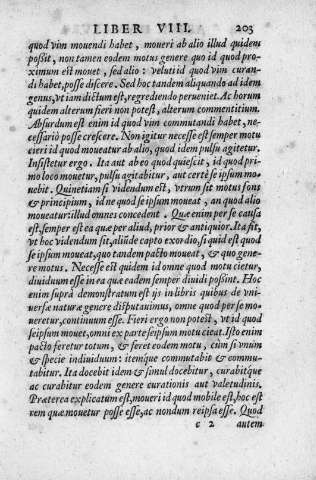 LIBER VIII. 203
quod vim mouendi habet, moueri ab alio illud quidem
poßit, non tamen eodem motus genere quo id quod pro-
ximum est mouet, sed alio: veluti id quod vim curan-
di habet, posse discere. Sed hoc tandem aliquando ad idem
genus, vt iam dictum est, regrediendo perueniet. Ac horum
quidem alterum fieri non potest, alterum commentitium.
Absurdum est enim id quod vim commutandi habet, ne-
cessariò posse crescere. Non igitur necesse est semper motu
cieri id quod moueatur ab alio, quod idem pulsu agitetur.
Insistetur ergo. Ita aut ab eo quod quiescit, id quod pri-
mo loco mouetur, pulsu agitabitur, aut certè se ipsum mo-
uebit. Quinetiam si videndum est, vtrum sit motus fons
& principium, id ne quod se ipsum moueat, an quod alio
moueatur: illud omnes concedent. Quæ enim per se causa
est, semper est ea quæ per aliud, prior & antiquior. Ita fit,
vt hoc videndum sit, aliũde capto exordio, si quid est quod
se ipsum moueat, quo tandem pacto moueat, & quo gene-
re motus. Necesse est quidem id omne quod motu cietur,
diuiduum esse in ea quæ eadem semper diuidi possint. Hoc
enim suprà demonstratum est ijs in libris quibus de vni-
uersæ naturæ genere disputauimus, omne quod per se mo-
ueretur, continuum esse. Fieri ergo non potest, vt id quod
se ipsum mouet, omni ex parte se ipsum motu cieat. Isto enim
pacto feretur totum, & feret eodem motu, cùm si vnum
& specie indiuiduum: itémque commutabit & commu-
tabitur. Ita docebit idem & simul docebitur, curabitq́ue
ac curabitur eodem genere curationis aut valetudinis.
Præterea explicatum est, moueri id quod mobile est, hoc est
rem quæ mouetur posse esse, ac nondum reipsa esse. Quod
c 2 autem